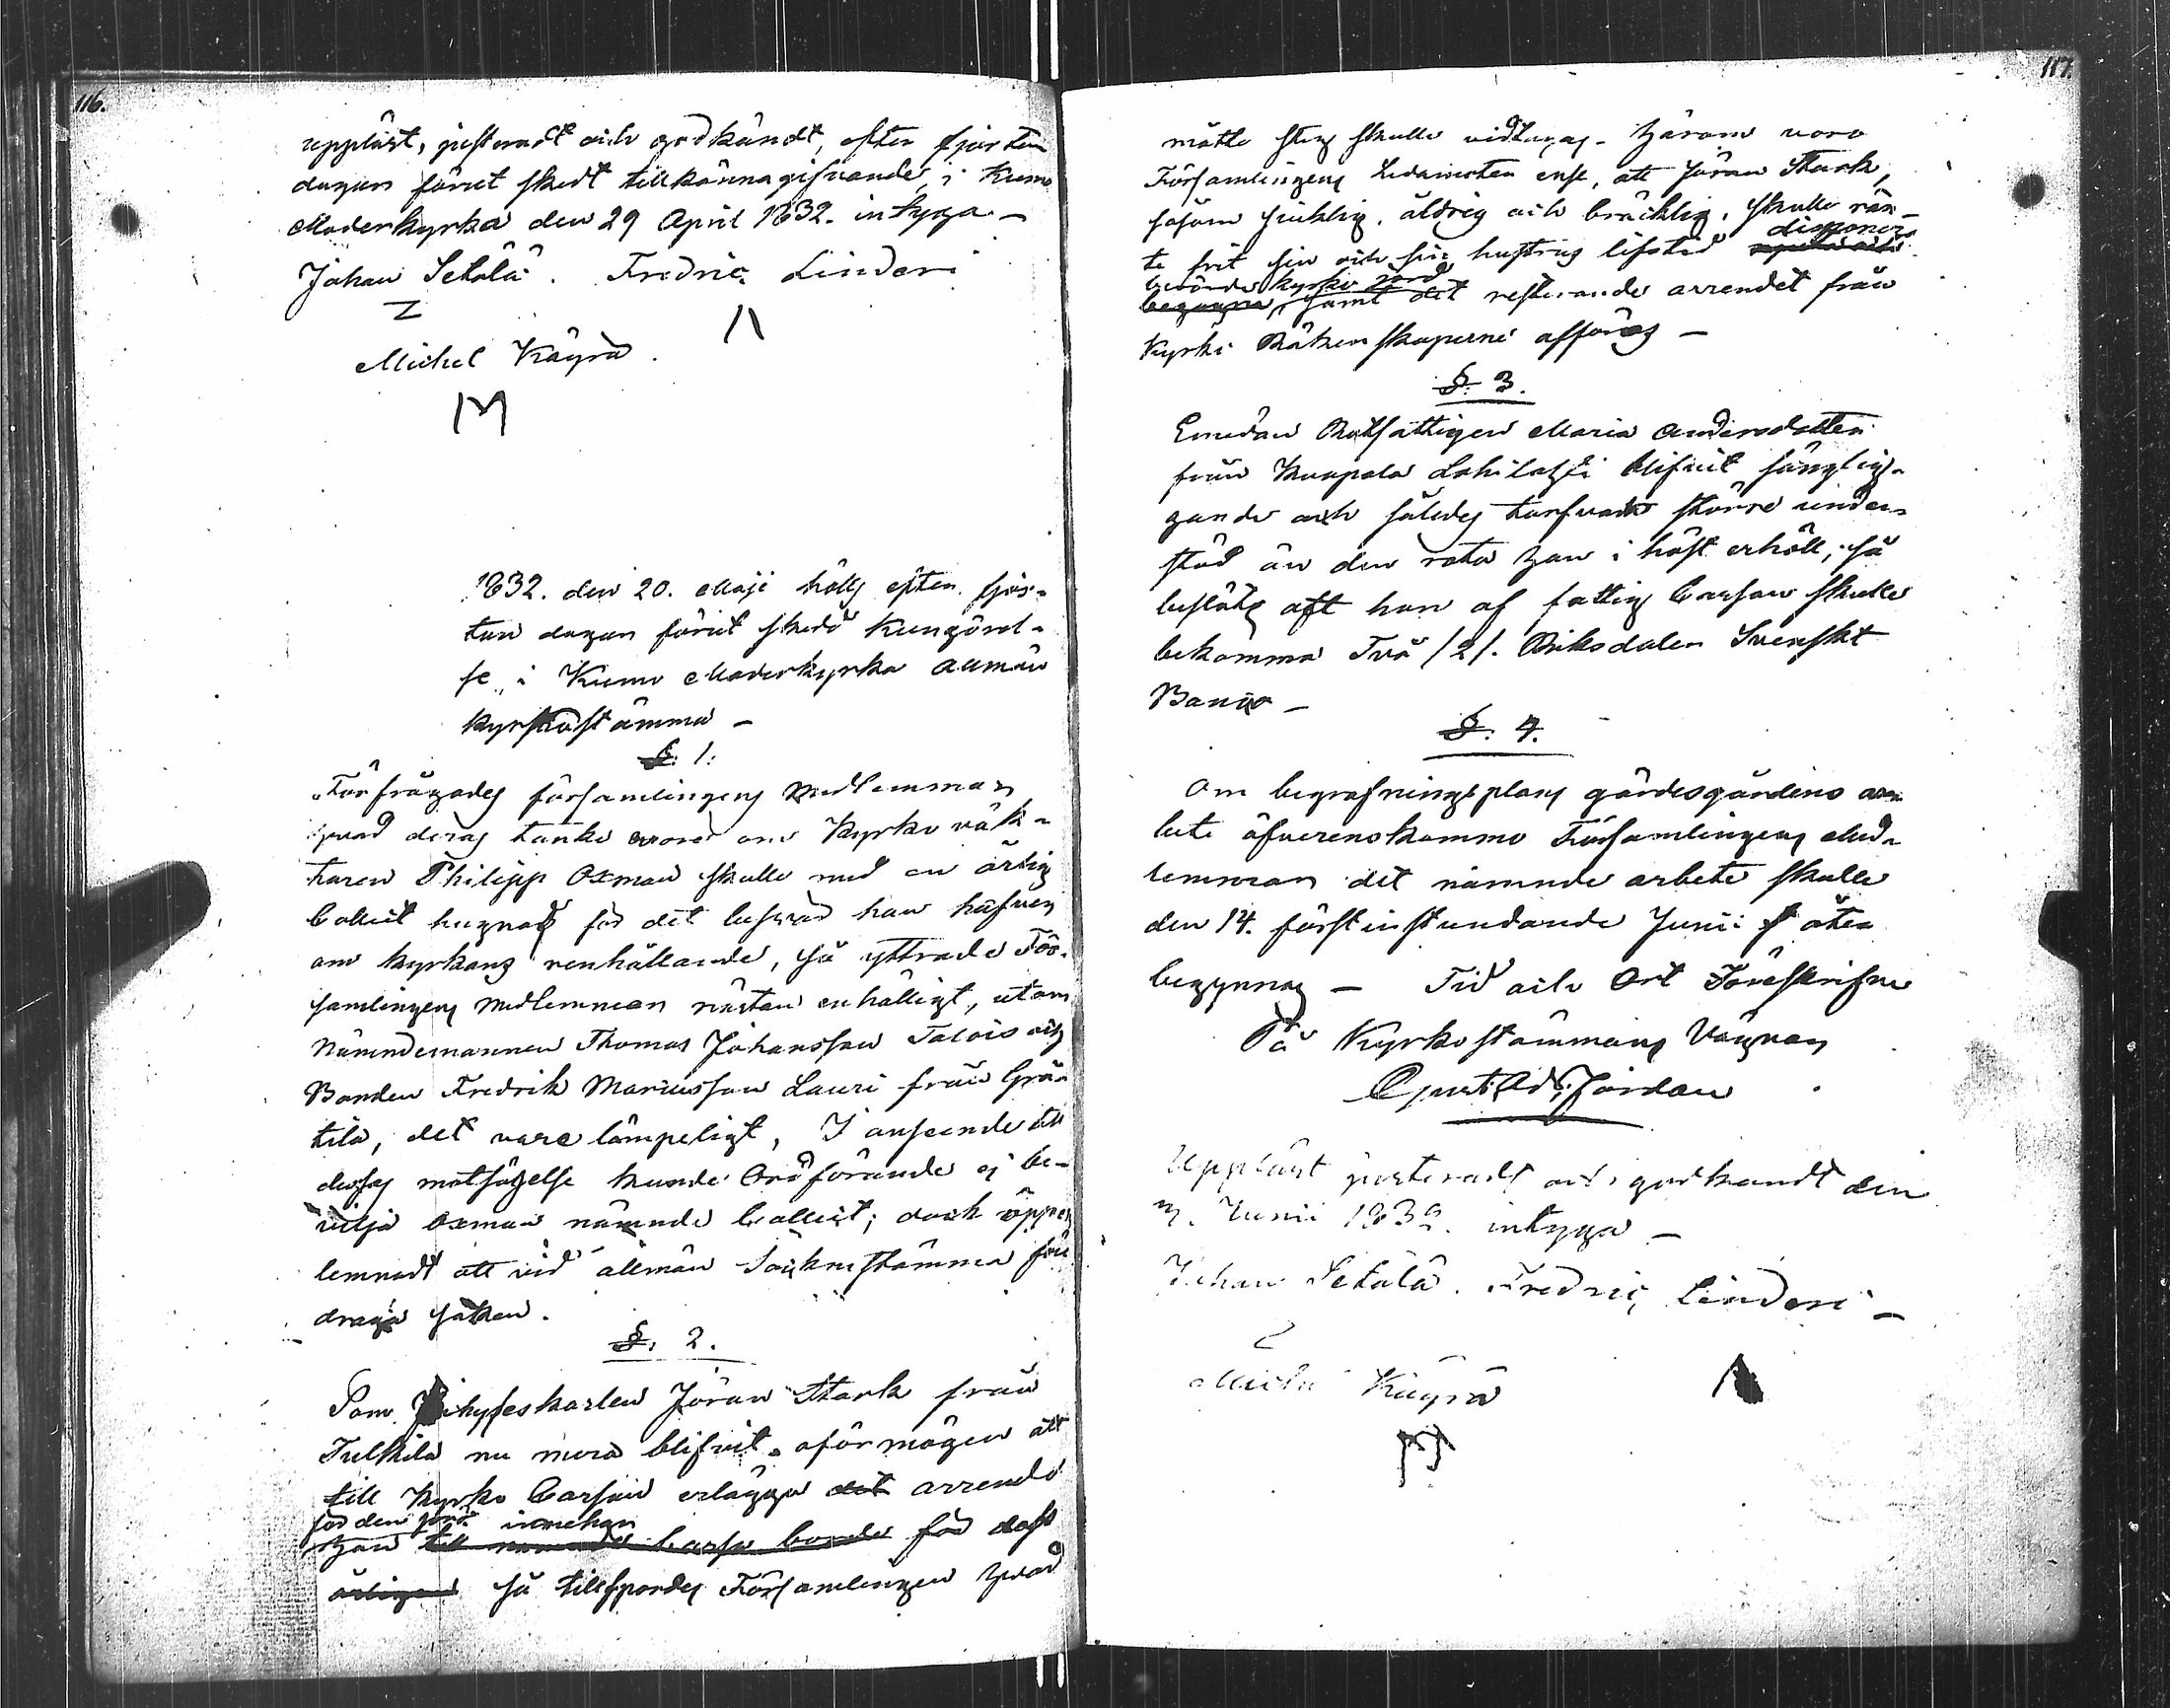 116.
uppläst, justeradt och godkändt, efter fjorton
dagar förut skedt tillkännagifvande, i Kumo
Moderkyrka den 29 April 1832. intyga –
Johan Setälä. Fredric Linderi
Michel Käyrä.
1832. den 20. Maji hölls efter fjor-
ton dagar förut skedd kungörel-
se, i Kumo Moderkyrka allmän
kyrkostämma –
§. 1.
Förfrågades församlingens medlemmar
hvad deras tanke vore om kyrko väk-
taren Philipp Oxman skulle med en årlig
Collect hugnas för det besvär han hafver
om kyrkans renhållande, så yttrade För-
samlingens medlemmar nästan enhälligt, utom
Nämndemannen Thomas Johansson Talois och
Bonden Fredrik Mariusson Lauri från Grä-
tilä, det vore lämpeligt, I anseende till
dessas motsägelse kunde Ordförande ej be-
vilja Oxman nämnde Collect; dock öppet
lemnadt att vid allmän Sockenstämma före
draga saken.
§. 2.
Som Inhyseskarlen Jöran Stark från
Tulkila nu mera blifvit oförmögen att
till Kyrko Cassan erlägga det arrende
för den jord innehar
han till nämnde cassa borde för dess
årligen så tillspordes Församlingen hvad
117.
måtte steg skulle vidtagas. Härom voro
Församlingens Ledamöter ense, att Jöran Stark,
såsom sjuklig, åldrig och bräcklig, skulle rän-
disponera
te frit sin och sin hustrus lifstid
berörde kyrko jord
begagna, samt det resterande arrendet från
Kyrko Räkenskaperne afföras –
§. 3.
Emedan Rotfattigen Maria Andersdotter
från Kuapala Lahilatzti blifvit sänglig-
gande och således tarfvade större under-
stöd än den rota han i höst erhöll, så
beslöts att hon af fattig Cassan skulle
bekomma Två /2/. Riksdaler Svenskt
Banco –
§. 4.
Om begrafningsplans gärdesgårdens ar-
bete öfverenskommo Församlingens Med-
lemmar det nämnde arbete skulle
den 14. förstinstundande Junii åter
begynnas – Tid och Ort Föreskrifne
På Kyrkostämmans Vägnar
Gust: Ad: Jordan
Uppläst justeradt och godkändt den
3. Junii 1832. intyga –
Johan Setälä. Fredric Linderi –
Michel Käyrä